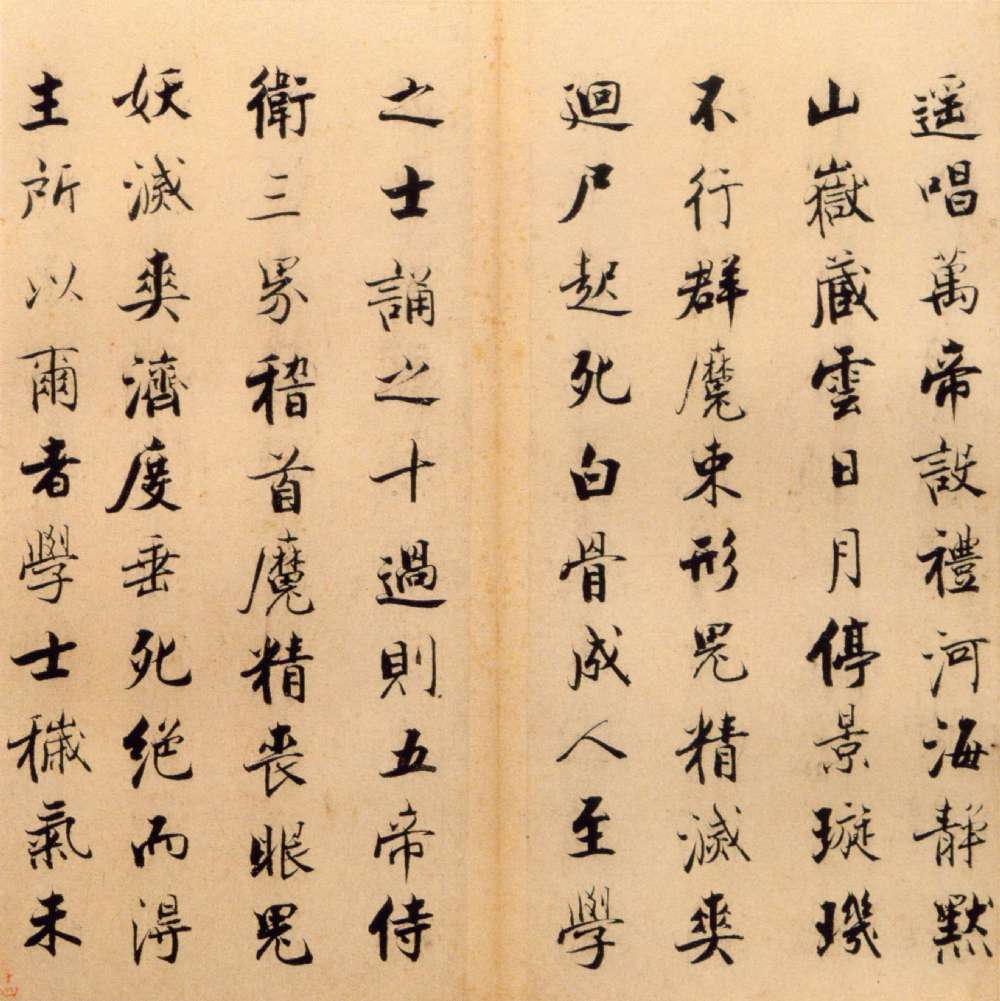 遥唱萬帝設禮河海靜黙
山嶽藏雲日月停景璇璣
不行群魔束形鬼精滅爽
迴尸起死白骨成人至學
之士誦之十過則五帝侍
衛三界稽首魔精喪眼鬼
妖滅爽濟度垂死絕而得
主所以爾者學士穢氣未